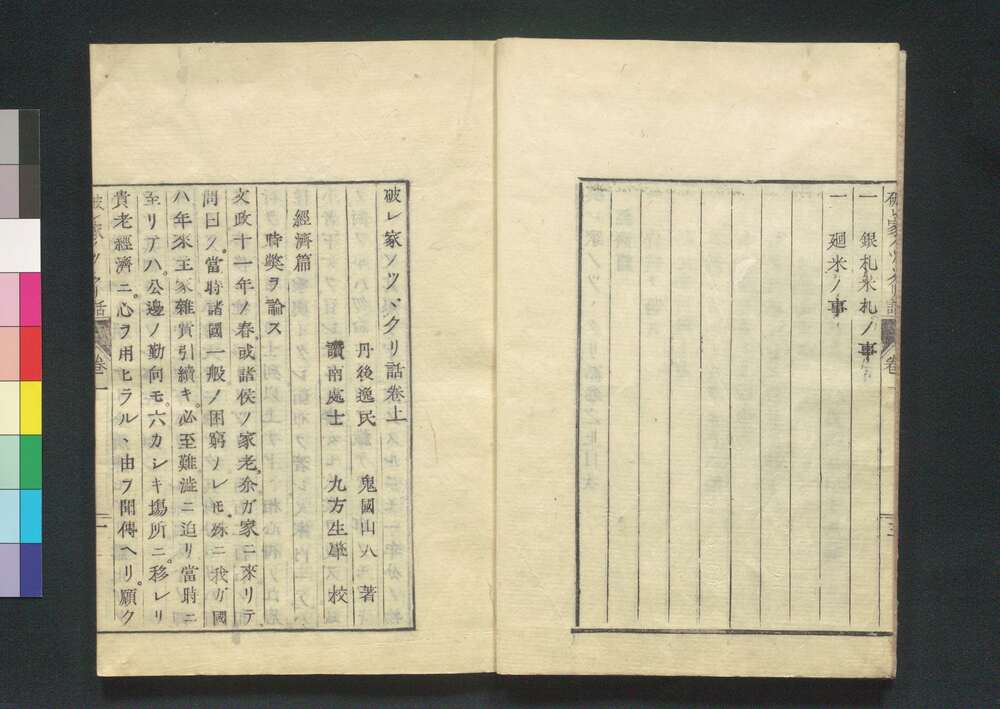 一　銀札米札ノ事
一　廻米ノ事
破レ家ノツヾクリ話卷上
丹後逸民　鬼國山人　著
讚南處士　九方生皐　校
經濟篇
時弊ヲ論ス
文政十一年ノ春。或諸侯ノ家老。余ガ家ニ來リテ
問曰ク。當時諸國一般ノ困窮ノレモ。殊ニ我ガ國
ハ年來主家雜費引續キ。必至難澁ニ迫リ當時ニ
至リテハ。公邊ノ勤向モ。六カシキ場所ニ。移レリ
貴老經濟ニ。心ヲ用ヒラル丶由ヲ聞傳ヘリ。願ク
卷
一